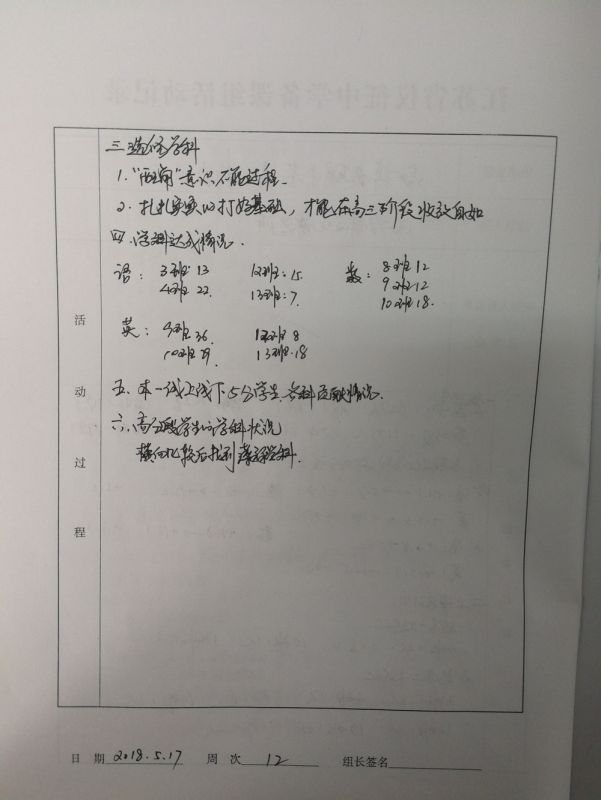 三.选修学科
1."两翼"意识不能过程.
2.扎扎实实的打好基础,才能在高三阶段收放自如
四.学科达成情况.
语: 3班: 13 12班: 15 数: 8班 12
4班 22. 13班: 7. 9班 12
10班 18.
英: 9班 36. 12班 8
10班 29. 13班 18
五.本一线上线下15分学生.各科贡献情况.
六.高分段学生的学科状况
横向比较后找到薄弱学科.
活
动
过
程
日 期 2018.5.17 周 次 12 组长签名